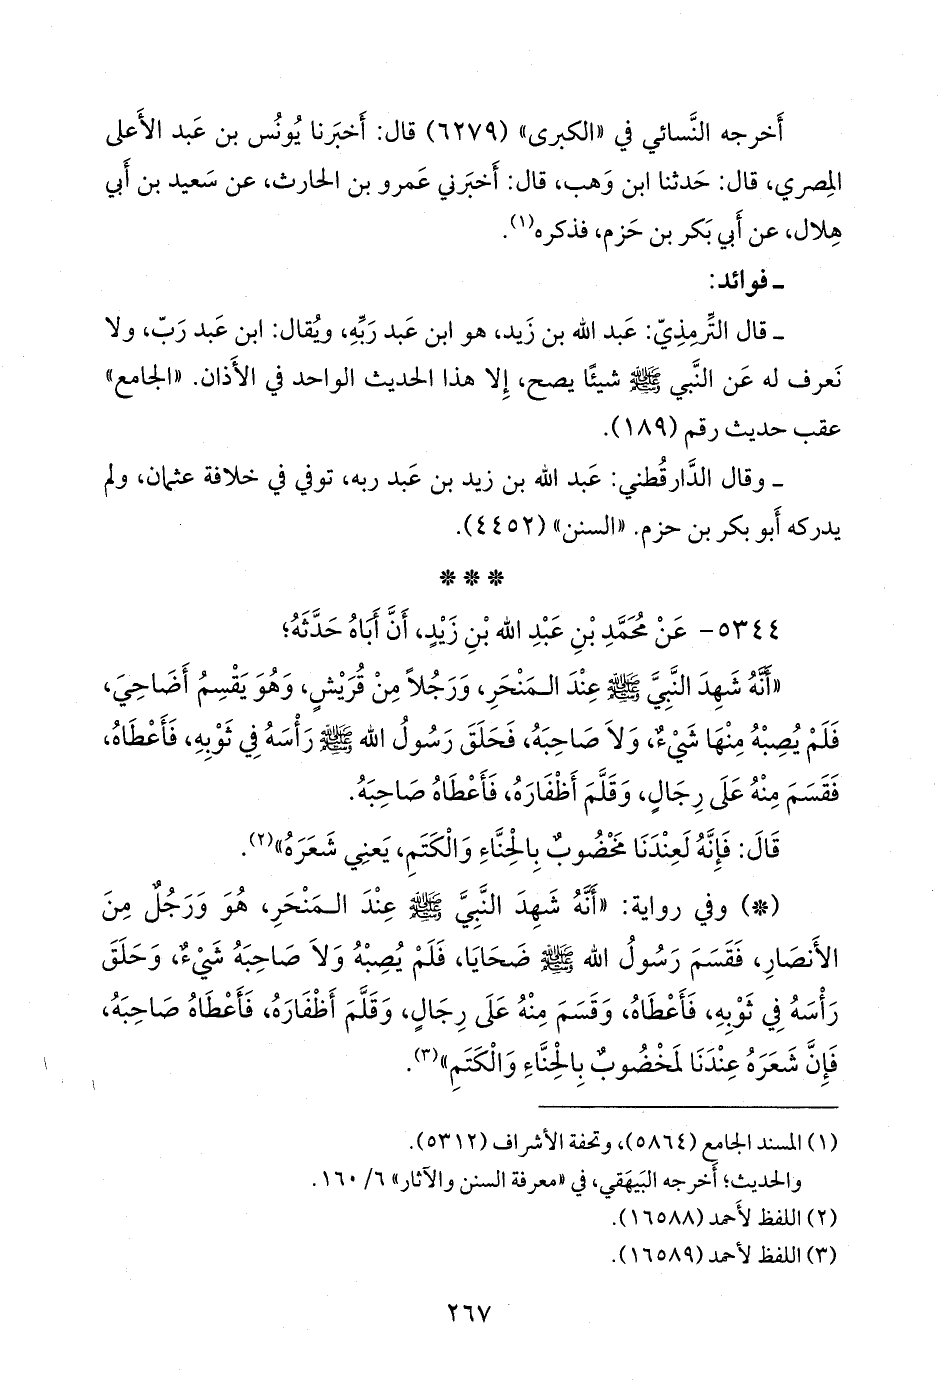 أَخرجه النَّسائي في «الكبرى» (٦٢٧٩) قال: أَخبَرنا يُونُس بن عَبد الأَعلى
المِصري، قال: حَدثنا ابن وَهب، قال: أَخبَرني عَمرو بن الحارث، عن سَعيد بن أَبي
هِلال، عن أَبي بَكر بن حَزم، فذكره(١).
ـ فوائد:
ـ قال التِّرمِذِيّ: عَبد الله بن زَيد، هو ابن عَبد رَبِّهِ، ويُقال: ابن عَبد رَبّ، ولا
نَعرف له عَن النَّبي ﷺ شيئًا يصح، إِلا هذا الحديث الواحد في الأَذان. «الجامع»
عقب حديث رقم (١٨٩).
ـ وقال الدَّارقُطني: عَبد الله بن زيد بن عَبد ربه، توفي في خلافة عثمان، ولم
يدركه أَبو بكر بن حزم. «السنن» (٤٤٥٢).
* * *
٥٣٤٤- عَنْ مُحَمَّدِ بْنِ عَبْدِ الله بْنِ زَيْدٍ، أَنَّ أَبَاهُ حَدَّثَهُ؛
«أَنَّهُ شَهِدَ النَّبِيَّ ﷺ عِنْدَ الـمَنْحَرِ، وَرَجُلاً مِنْ قُرَيْشٍ، وَهُوَ يَقْسِمُ أَضَاحِيَ،
فَلَمْ يُصِبْهُ مِنْهَا شَيْءٌ، وَلاَ صَاحِبَهُ، فَحَلَقَ رَسُولُ الله ﷺ رَأْسَهُ فِي ثَوْبِهِ، فَأَعْطَاهُ،
فَقَسَمَ مِنْهُ عَلَى رِجَالٍ، وَقَلَّمَ أَظْفَارَهُ، فَأَعْطَاهُ صَاحِبَهُ.
قَالَ: فَإِنَّهُ لَعِنْدَنَا مَخْضُوبٌ بِالْحِنَّاءِ وَالْكَتَمِ، يَعنِي شَعَرَهُ»(٢).
(*) وفي رواية: «أَنَّهُ شَهِدَ النَّبِيَّ ﷺ عِنْدَ الـمَنْحَرِ، هُوَ وَرَجُلٌ مِنَ
الأَنصَارِ، فَقَسَمَ رَسُولُ الله ﷺ ضَحَايَا، فَلَمْ يُصِبْهُ وَلاَ صَاحِبَهُ شَيْءٌ، وَحَلَقَ
رَأْسَهُ فِي ثَوْبِهِ، فَأَعْطَاهُ، وَقَسَمَ مِنْهُ عَلَى رِجَالٍ، وَقَلَّمَ أَظْفَارَهُ، فَأَعْطَاهُ صَاحِبَهُ،
فَإِنَّ شَعَرَهُ عِنْدَنَا لَمَخْضُوبٌ بِالْحِنَّاءِ وَالْكَتَمِ»(٣).
(١) المسند الجامع (٥٨٦٤)، وتحفة الأشراف (٥٣١٢).
والحديث؛ أَخرجه البَيهَقي، في «معرفة السنن والآثار» ٦/ ١٦٠.
(٢) اللفظ لأَحمد (١٦٥٨٨).
(٣) اللفظ لأَحمد (١٦٥٨٩).
٢٦٧